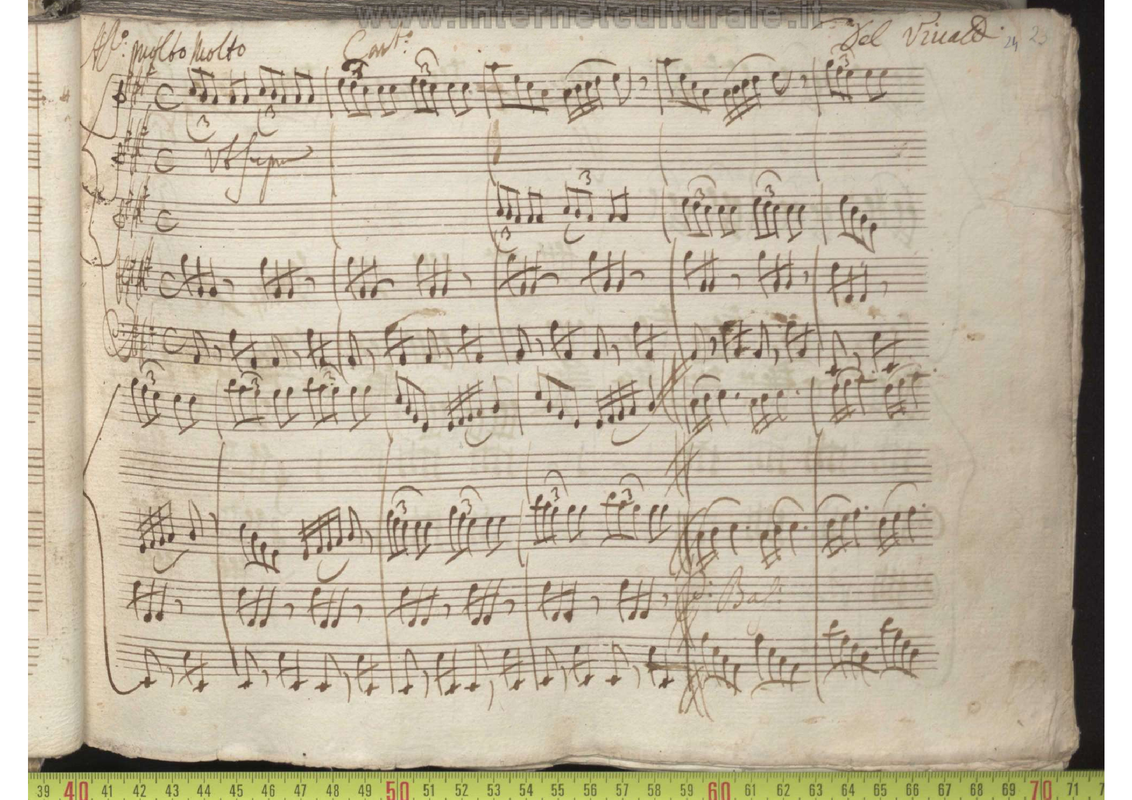 www.internetculturale.it
All.º molto molto Del Vivaldi 24 23
3 3
3 3 3
Ut supra
3 3
3
3 3 3
3 3 3 3
39 40 41 42 43 44 45 46 47 48 49 50 51 52 53 54 55 56 57 58 59 60 61 62 63 64 65 66 67 68 69 70 71 7